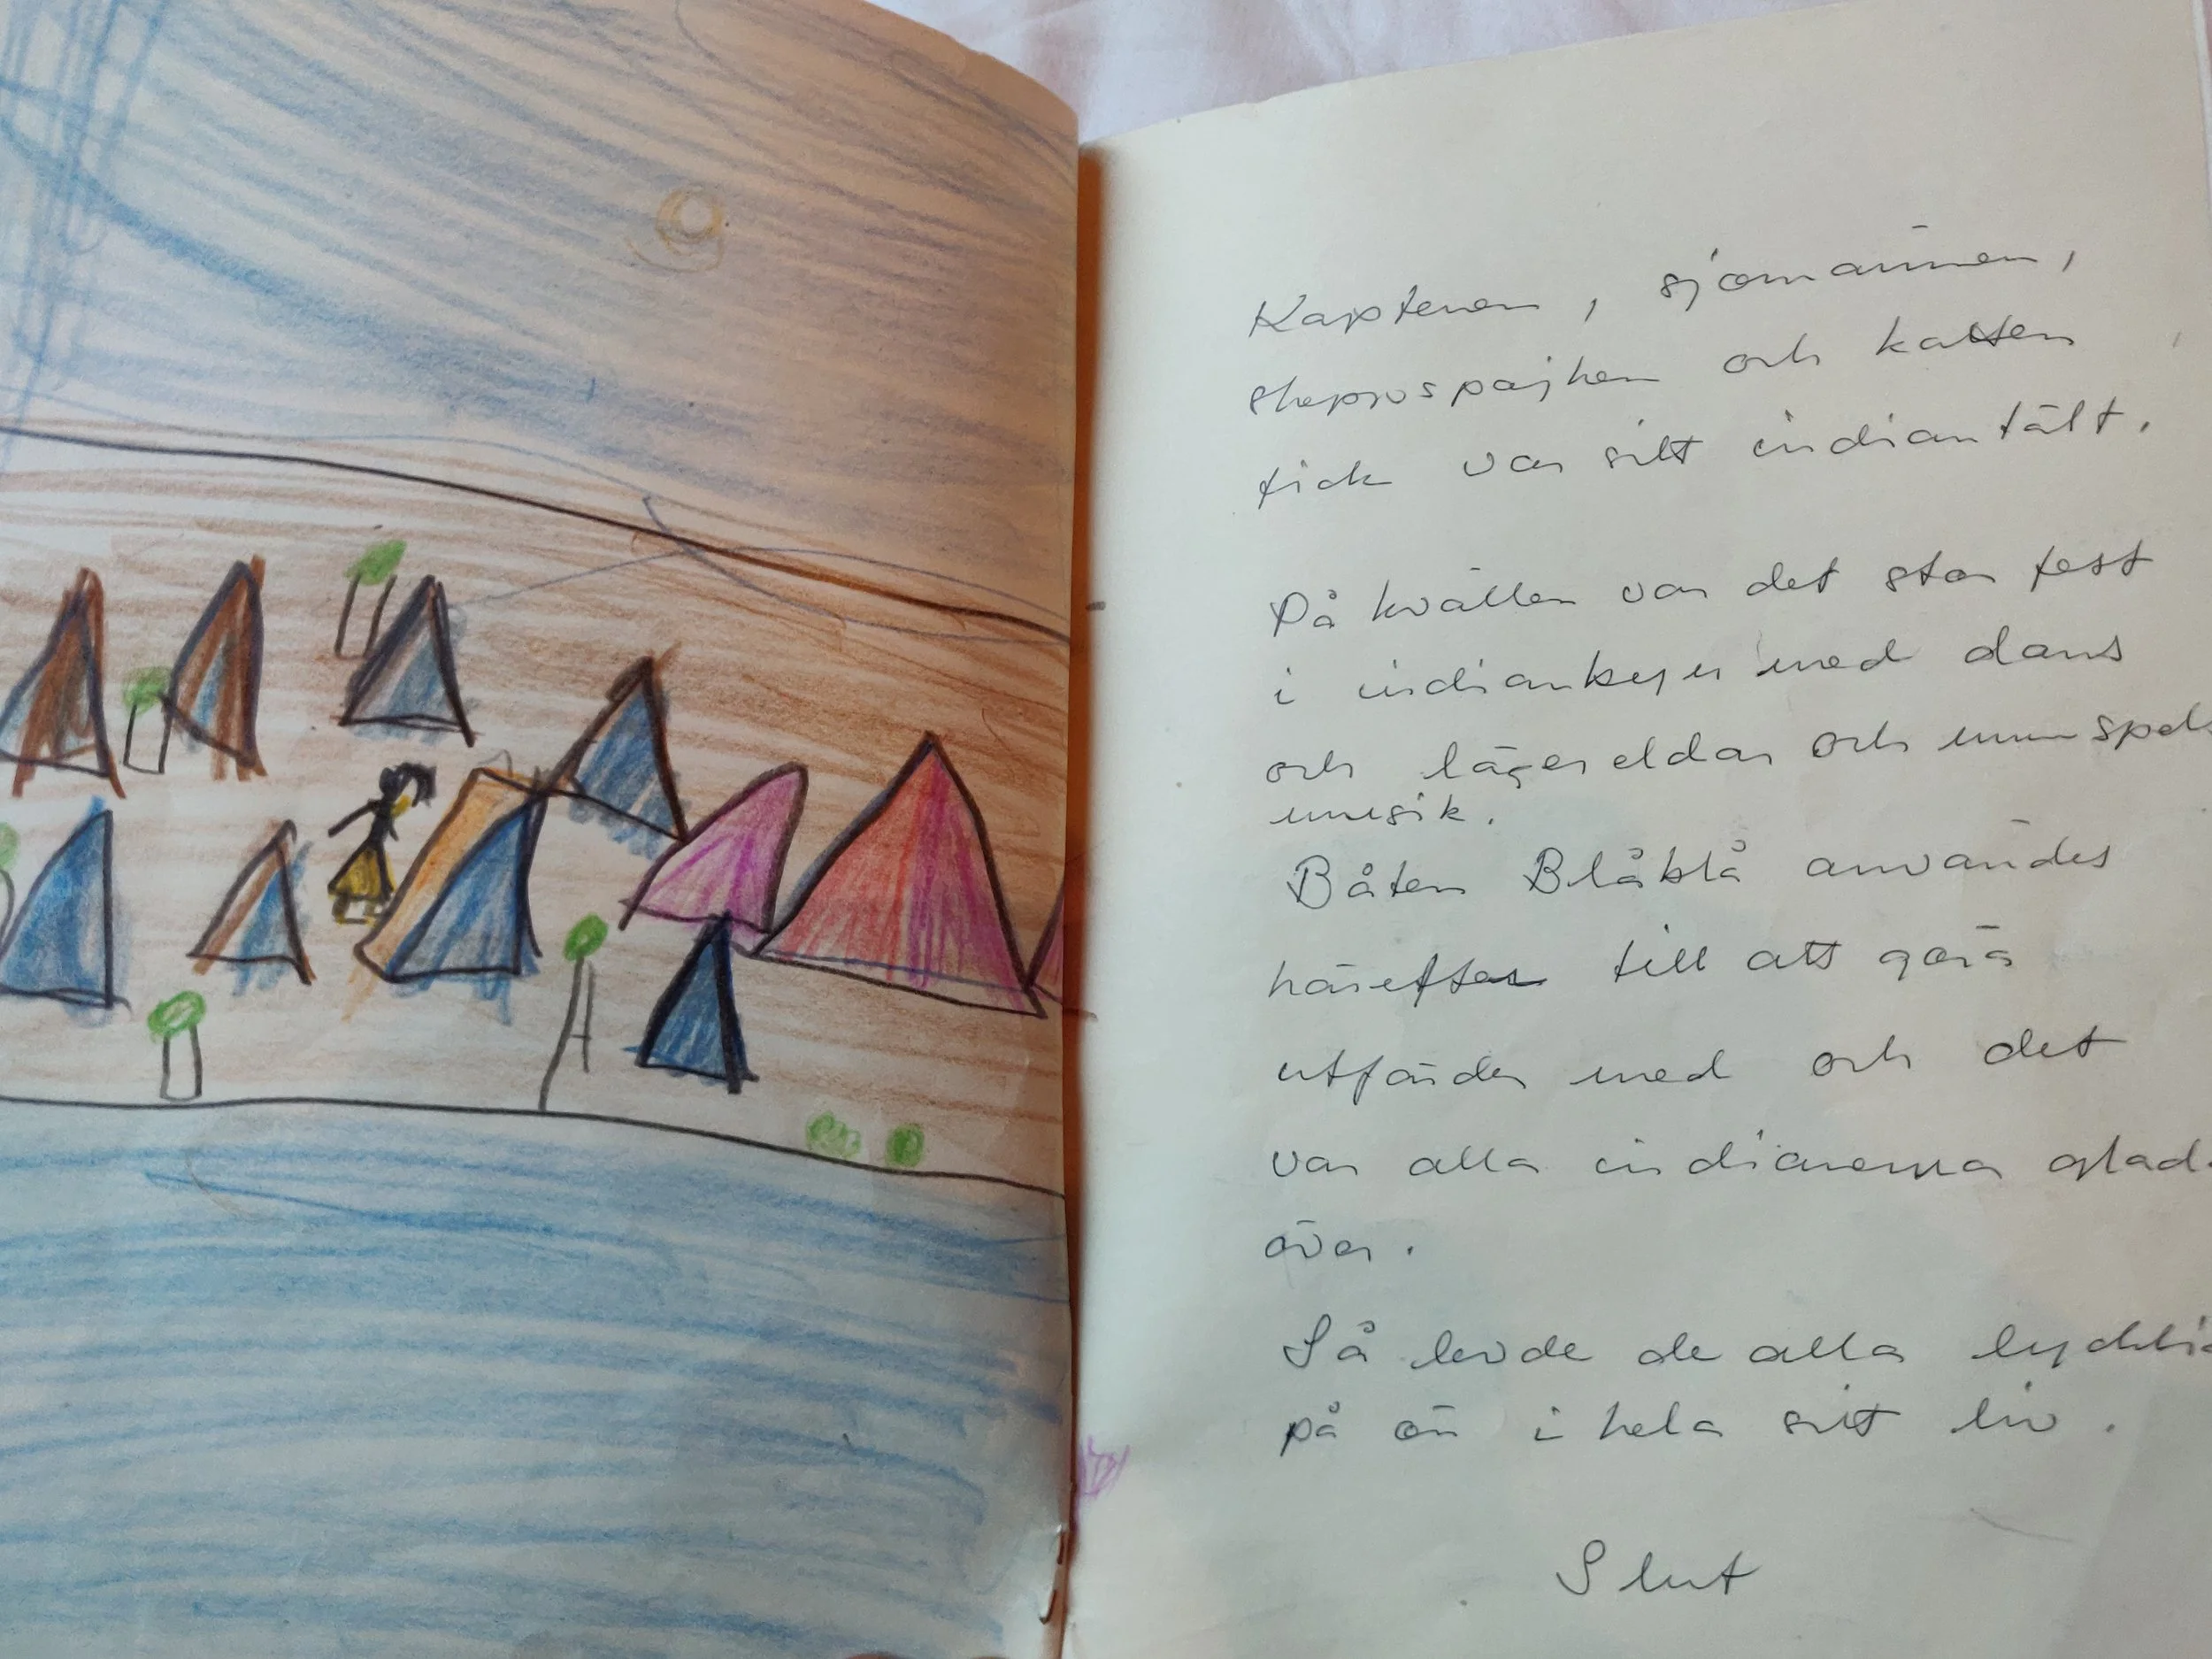 Kaptenen, sjömännen,
skeppspojken och katten
fick var sitt indiantält.
På kvällen var det stor fest
i indianbyn med dans
och lägereldar och munspels
musik.
Båten Blåblå användes
härefter till att göra
utfärder med och det
var alla indianerna glada
över.
Så levde de alla lyckliga
på ön i hela sitt liv.
Slut